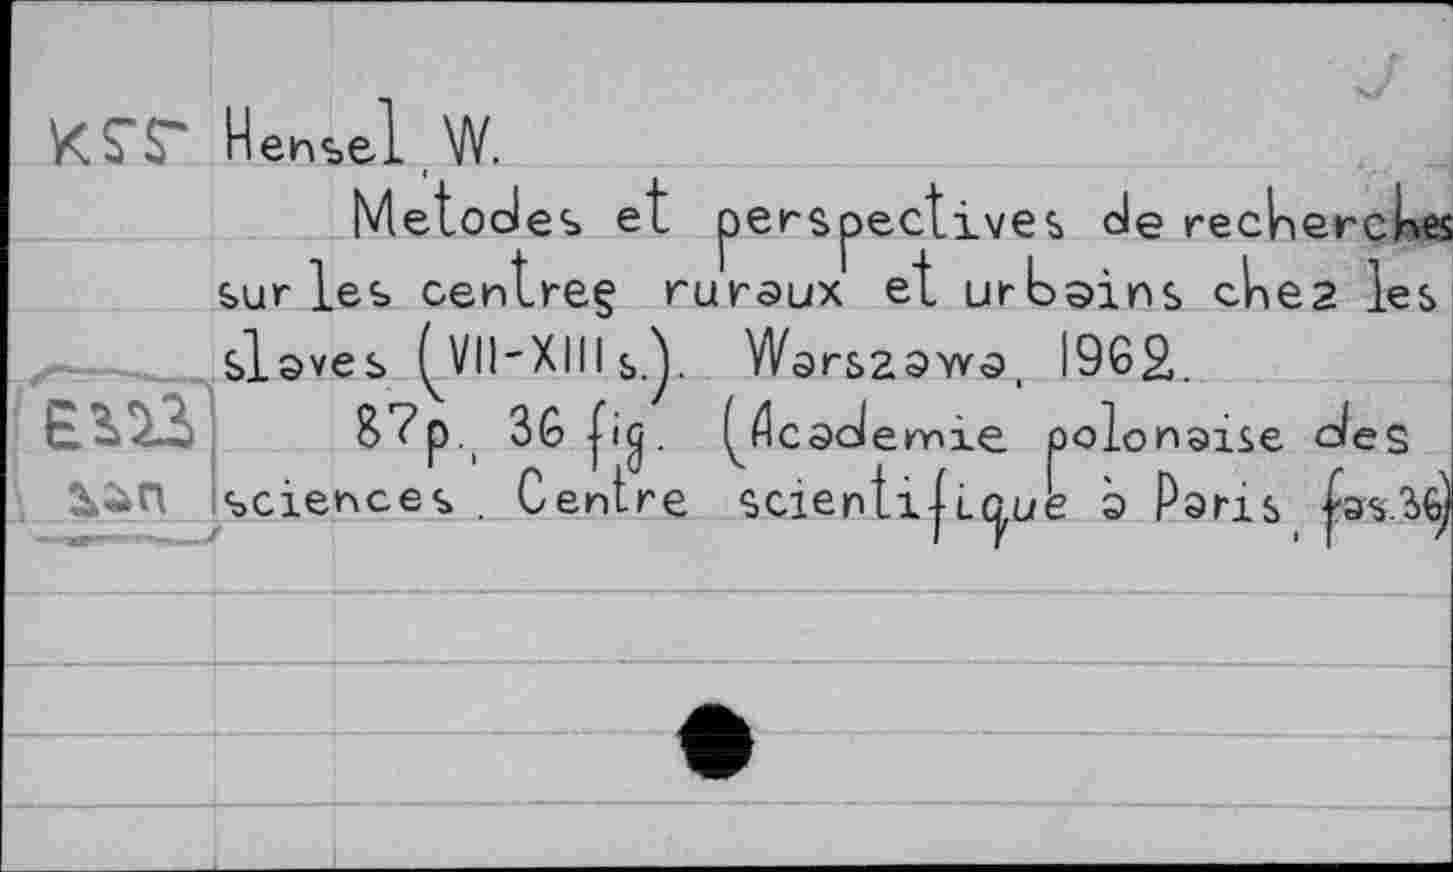 Hensel W.
Metodes et perspectives de recherches
sur les centres ruraux et urbains chez les
slaves (VII-XIII s.). Warszawa, 1962.
87p., 36 fig. (Academie polonaise des
sciences. Centre scientifique à Paris, fas.36)